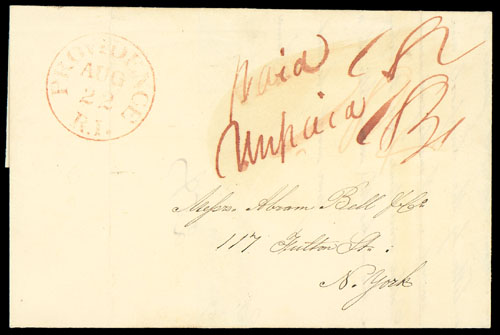 PROVIDENCE
AUG
22
R.I.
Paid
Unpaid
Messrs. Abram Bell & Co
117 Fulton St.
N. York